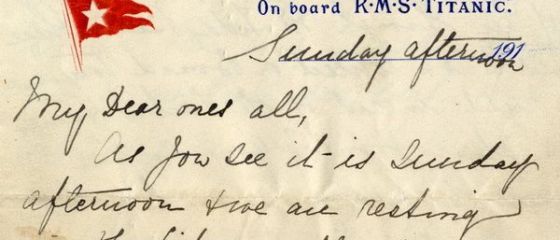 On board R·M·S·TITANIC.
191
Sunday afternoon
My Dear ones all,
As you see it is Sunday
afternoon & we are resting